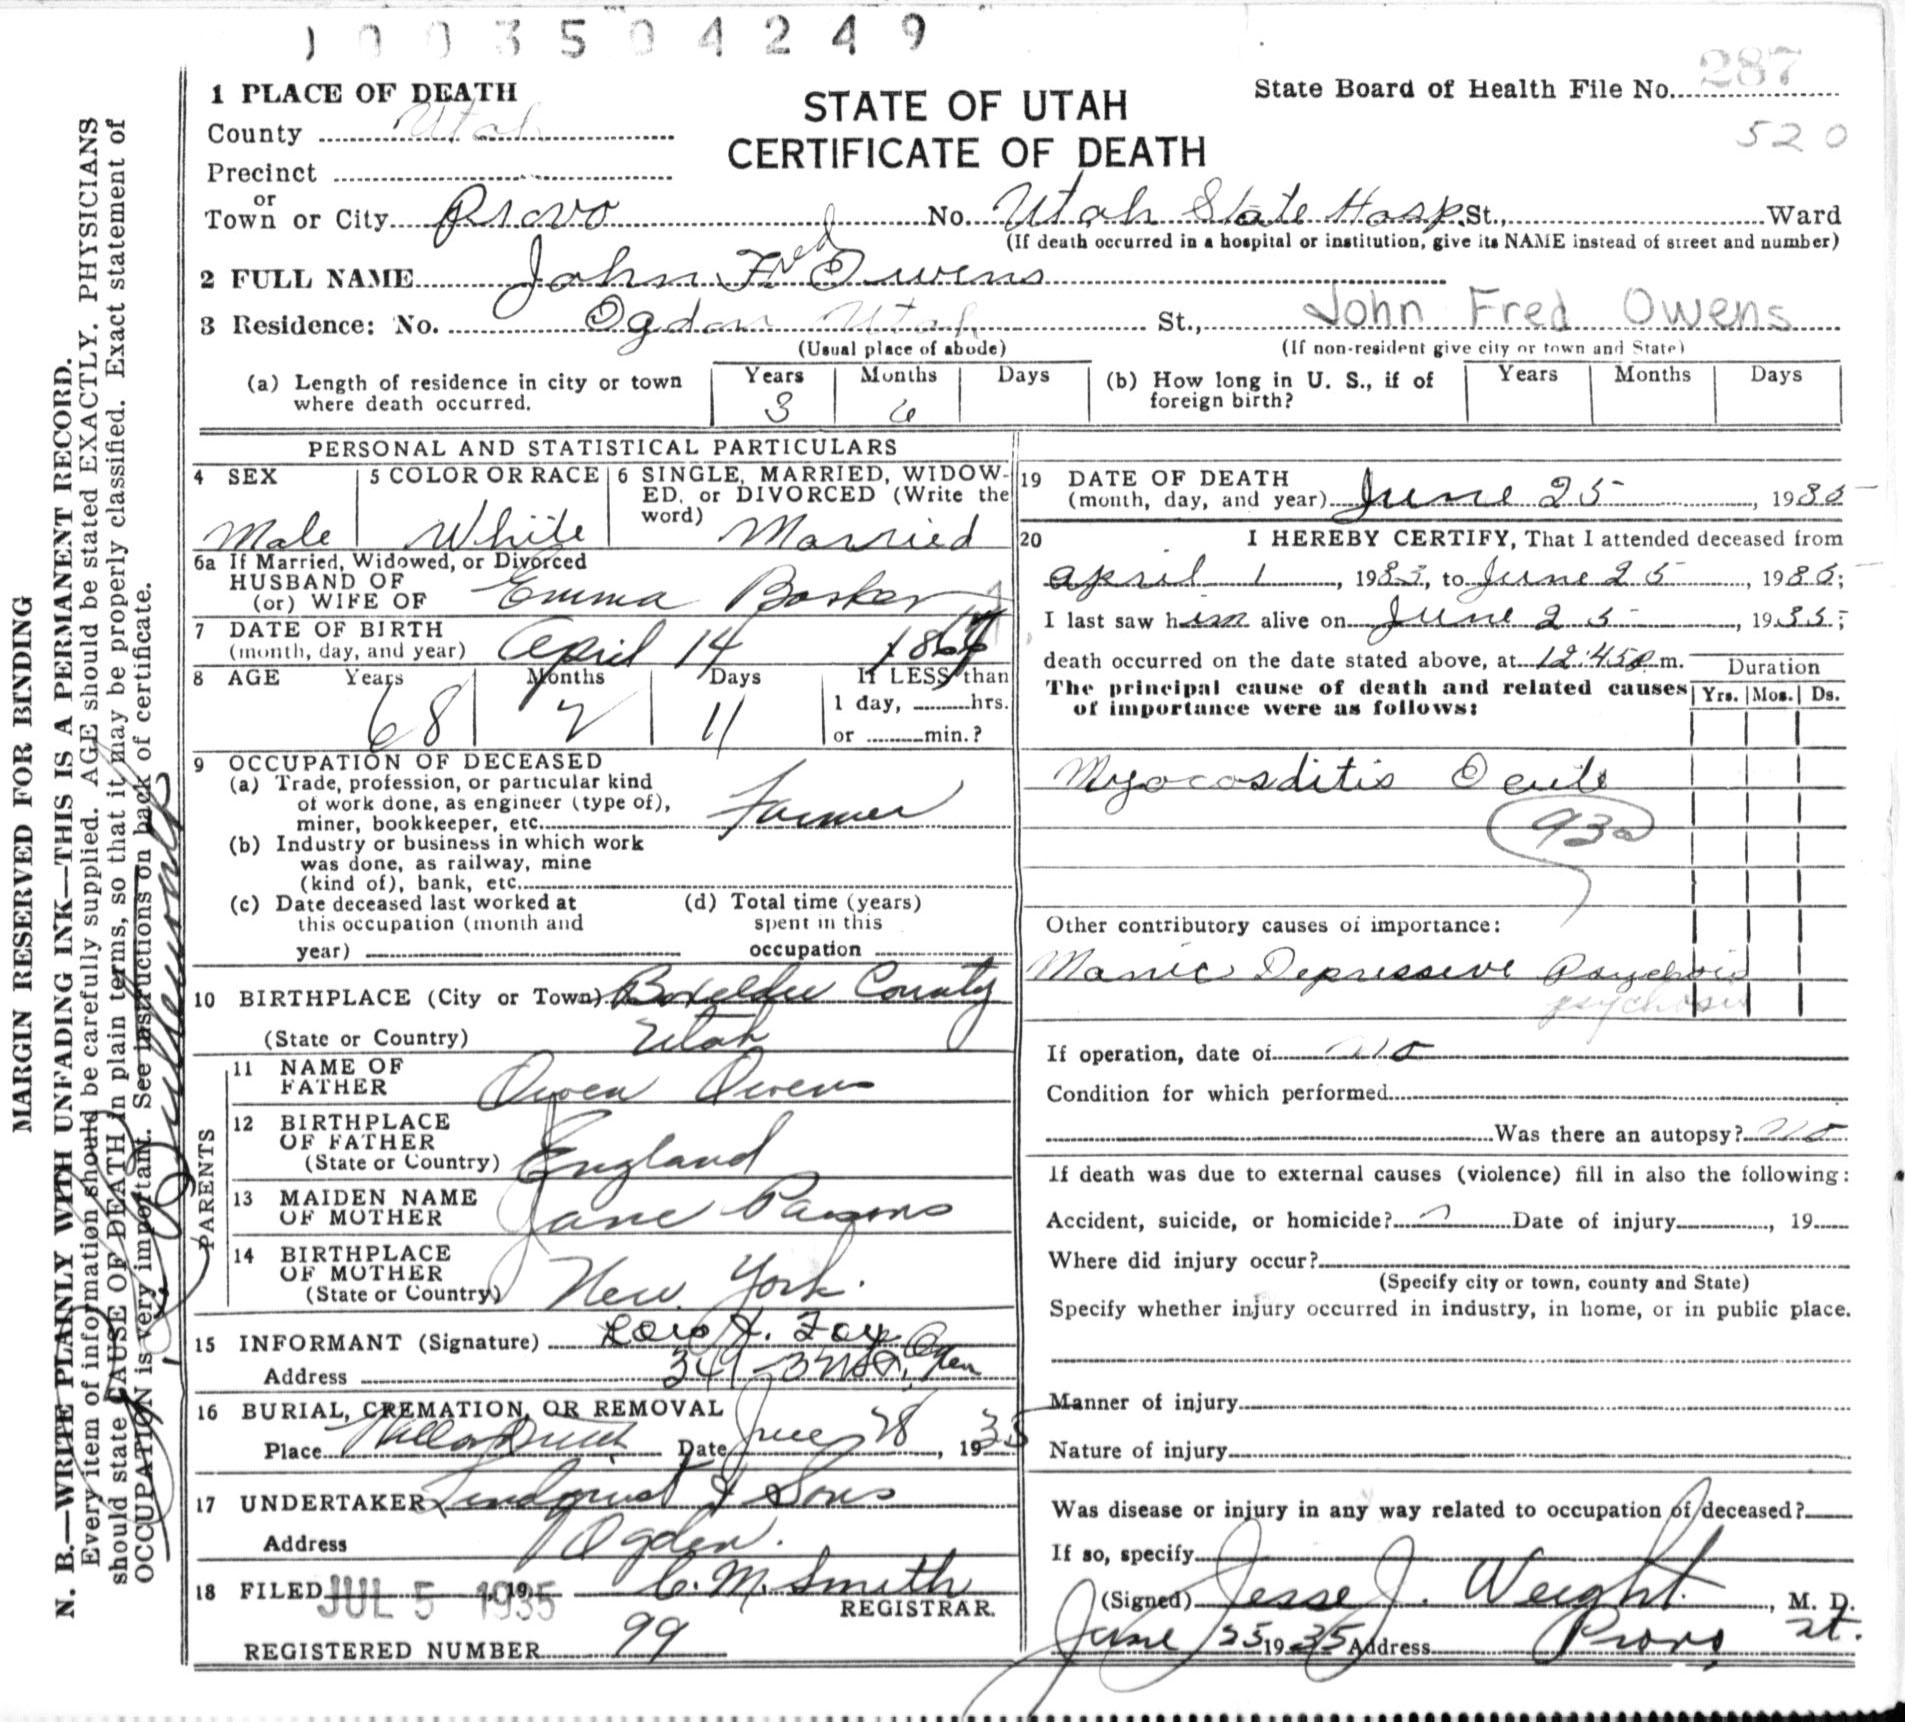 1003504249
1 PLACE OF DEATH
County Utah
Precinct
or
Town or City Provo No. Utah State Hosp. St., Ward
(If death occurred in a hospital or institution, give its NAME instead of street and number)
STATE OF UTAH
CERTIFICATE OF DEATH
State Board of Health File No. 287
520
2 FULL NAME John Fred Owens
3 Residence: No. Ogden Utah St., John Fred Owens
(Usual place of abode) (If non-resident give city or town and State)
(a) Length of residence in city or town where death occurred. Years 3 Months 6 Days
(b) How long in U. S., if of foreign birth? Years Months Days
PERSONAL AND STATISTICAL PARTICULARS
4 SEX Male
5 COLOR OR RACE White
6 SINGLE, MARRIED, WIDOW-
ED, or DIVORCED (Write the
word) Married
6a If Married, Widowed, or Divorced
HUSBAND OF
(or) WIFE OF Emma Barker
7 DATE OF BIRTH
(month, day, and year) April 14 1867
8 AGE Years 68 Months 2 Days 11 If LESS than
1 day, hrs.
or min.?
9 OCCUPATION OF DECEASED
(a) Trade, profession, or particular kind
of work done, as engineer (type of),
miner, bookkeeper, etc. Farmer
(b) Industry or business in which work
was done, as railway, mine
(kind of), bank, etc.
(c) Date deceased last worked at
this occupation (month and
year)
(d) Total time (years)
spent in this
occupation
10 BIRTHPLACE (City or Town) Boxelder County
(State or Country) Utah
PARENTS
11 NAME OF
FATHER Owen Owens
12 BIRTHPLACE
OF FATHER
(State or Country) England
13 MAIDEN NAME
OF MOTHER Jane Parsons
14 BIRTHPLACE
OF MOTHER
(State or Country) New York.
15 INFORMANT (Signature) Fox
Address 349
16 BURIAL, CREMATION, OR REMOVAL
Place Date June 28, 1935
17 UNDERTAKER Lindquist & Sons
Address Ogden.
18 FILED JUL 5 1935 19 C. M. Smith
REGISTRAR.
REGISTERED NUMBER 99
19 DATE OF DEATH
(month, day, and year) June 25, 1935
20 I HEREBY CERTIFY, That I attended deceased from
April 1, 1933, to June 25, 1935;
I last saw him alive on June 25, 1935;
death occurred on the date stated above, at 12:45 p.m.
The principal cause of death and related causes
of importance were as follows:
Duration
Yrs. Mos. Ds.
Myocarditis Acute
93a
Other contributory causes of importance:
Manic Depressive Psychosis
psychosis
If operation, date of no
Condition for which performed
Was there an autopsy? no
If death was due to external causes (violence) fill in also the following:
Accident, suicide, or homicide? Date of injury, 19
Where did injury occur?
(Specify city or town, county and State)
Specify whether injury occurred in industry, in home, or in public place.
Manner of injury
Nature of injury
Was disease or injury in any way related to occupation of deceased?
If so, specify
(Signed) Jesse J. Weight, M. D.
June 25 1935 Address Provo, Ut.
MARGIN RESERVED FOR BINDING
N. B.—WRITE PLAINLY WITH UNFADING INK—THIS IS A PERMANENT RECORD.
Every item of information should be carefully supplied. AGE should be stated EXACTLY. PHYSICIANS
should state CAUSE OF DEATH in plain terms, so that it may be properly classified. Exact statement of
OCCUPATION is very important. See instructions on back of certificate.